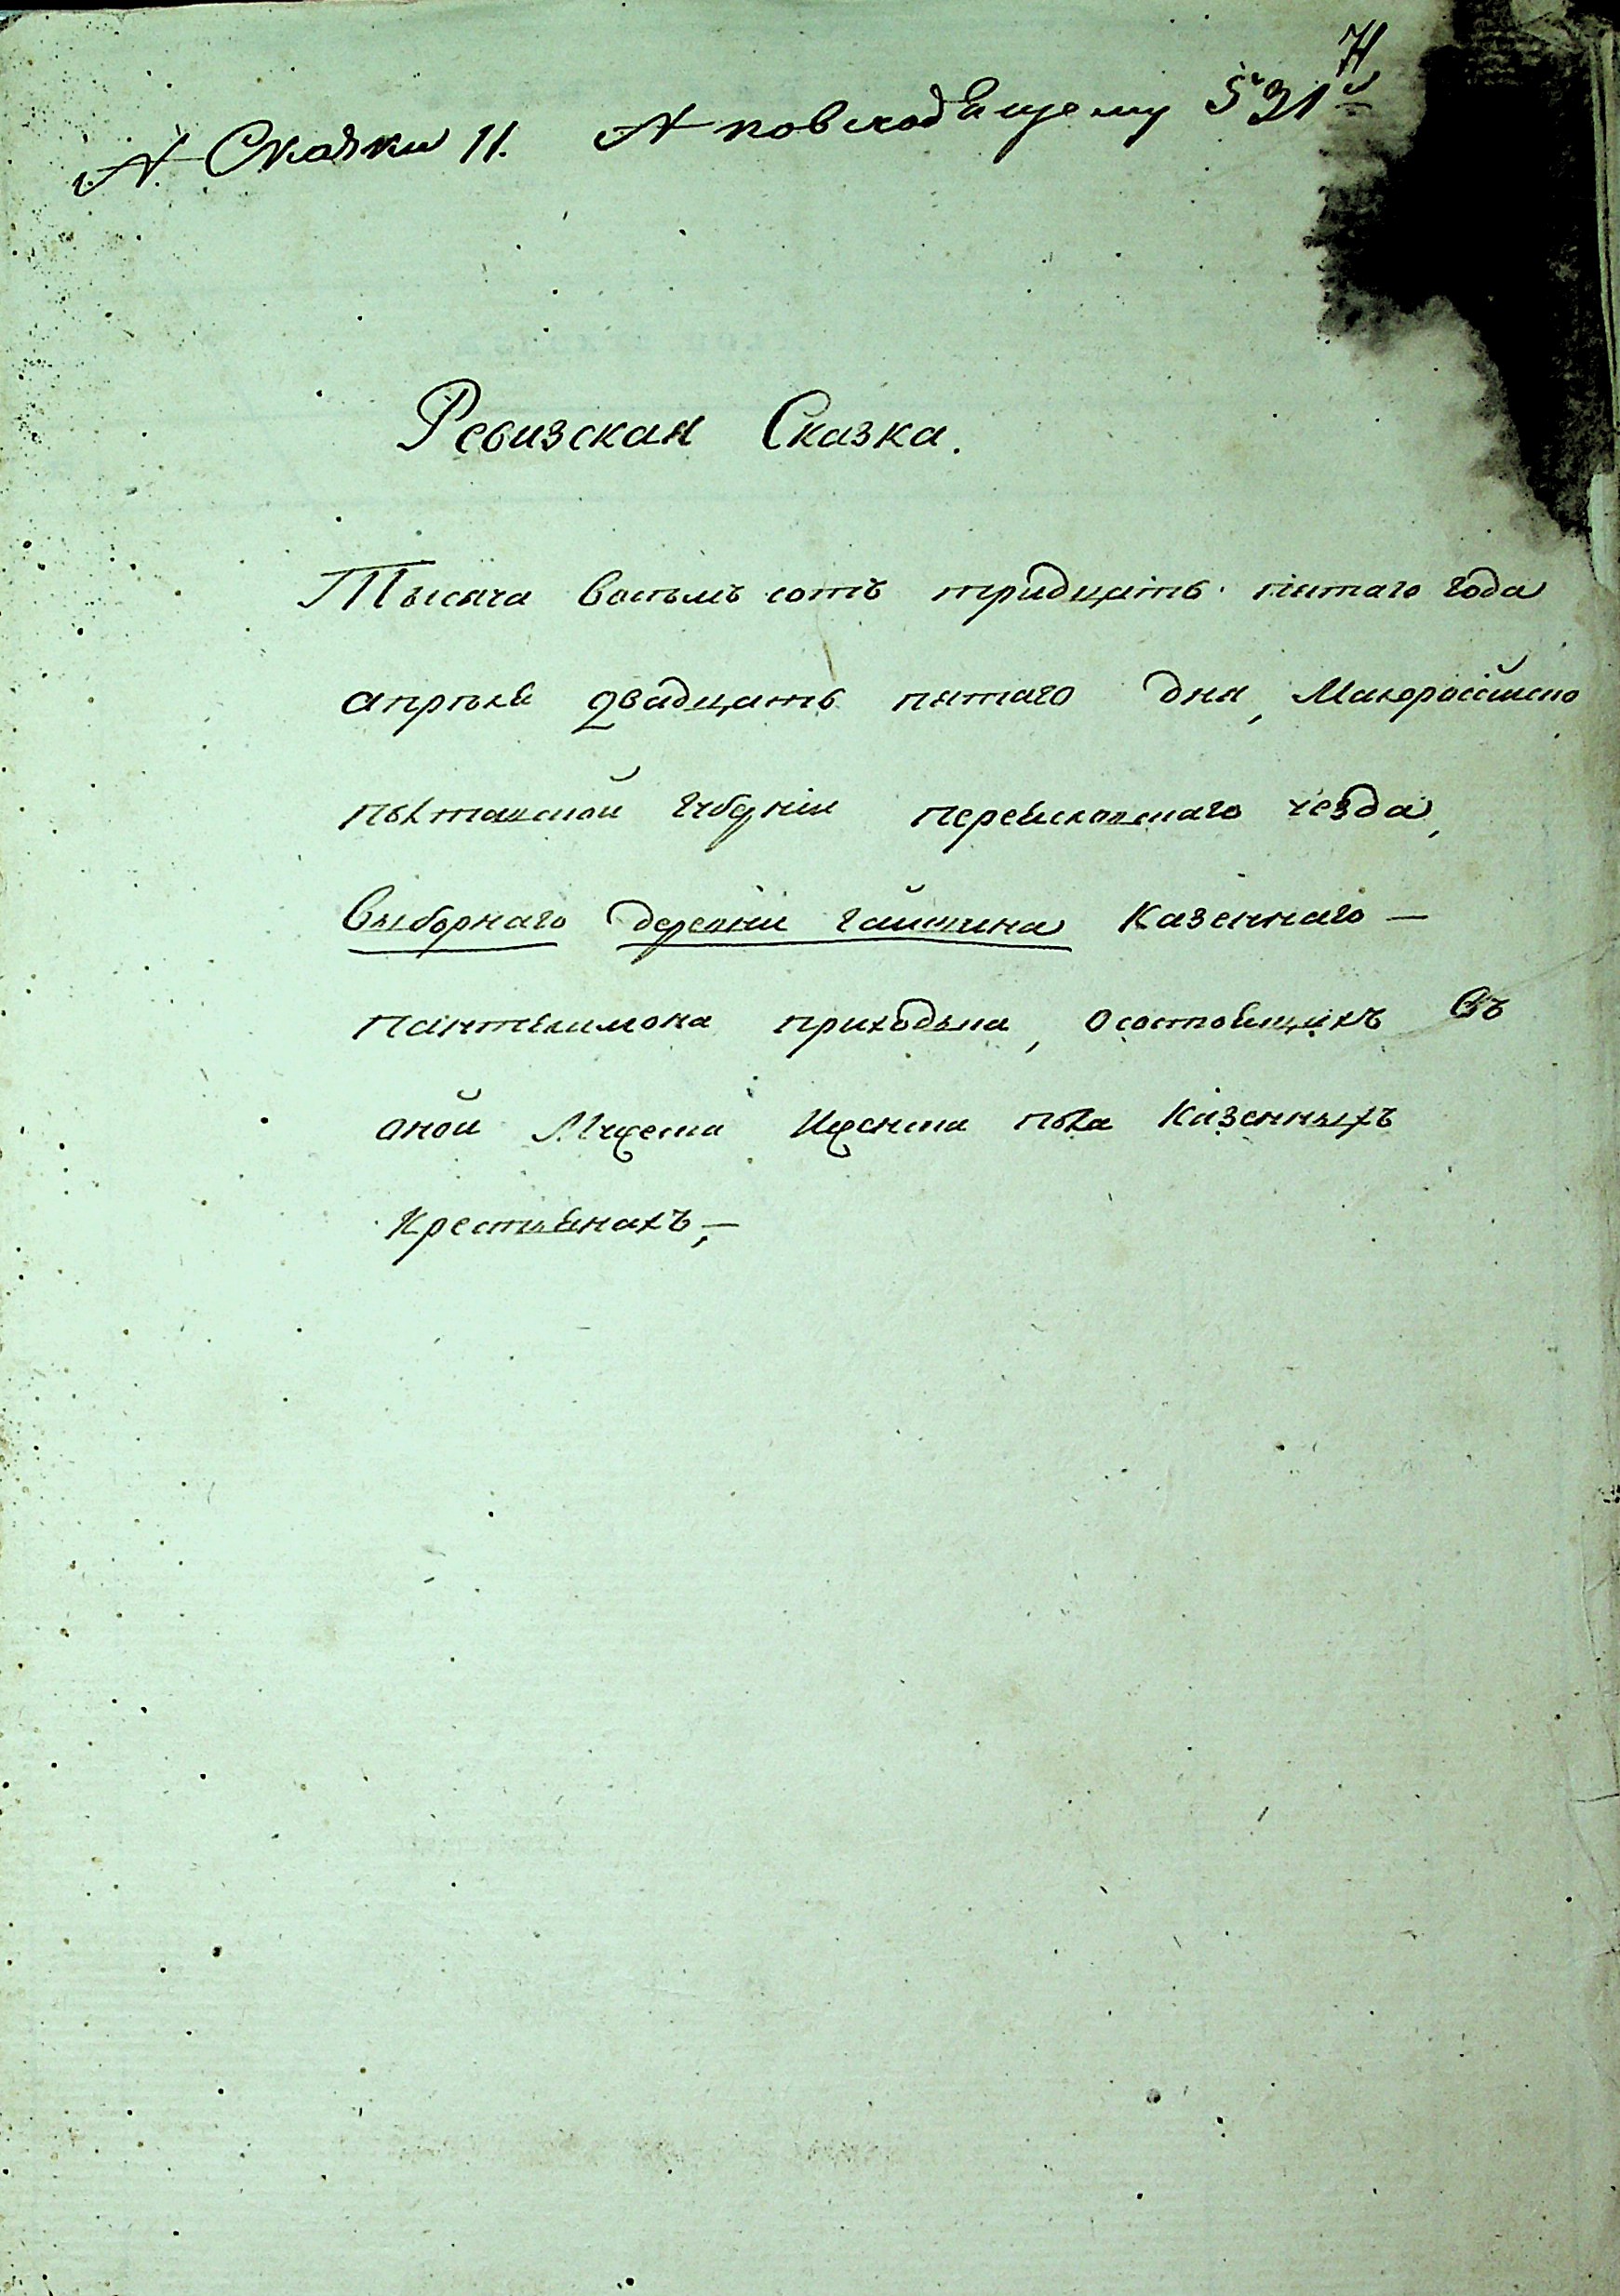 74
№ Сказки 11. № повсходящему 531й
Ревизская Сказка.
Тысяча восѣмъ сотъ тридцать пятаго года
апрѣля двадцать пятаго дня, Малороссійско
полтавской губерніи переясловскаго уезда,
Выборнаго деревни гайшина казеннаго —
пантелимона приходька, осостоящихъ въ
оной Мужеска Иженска пола казенныхъ
крестьянахъ,—